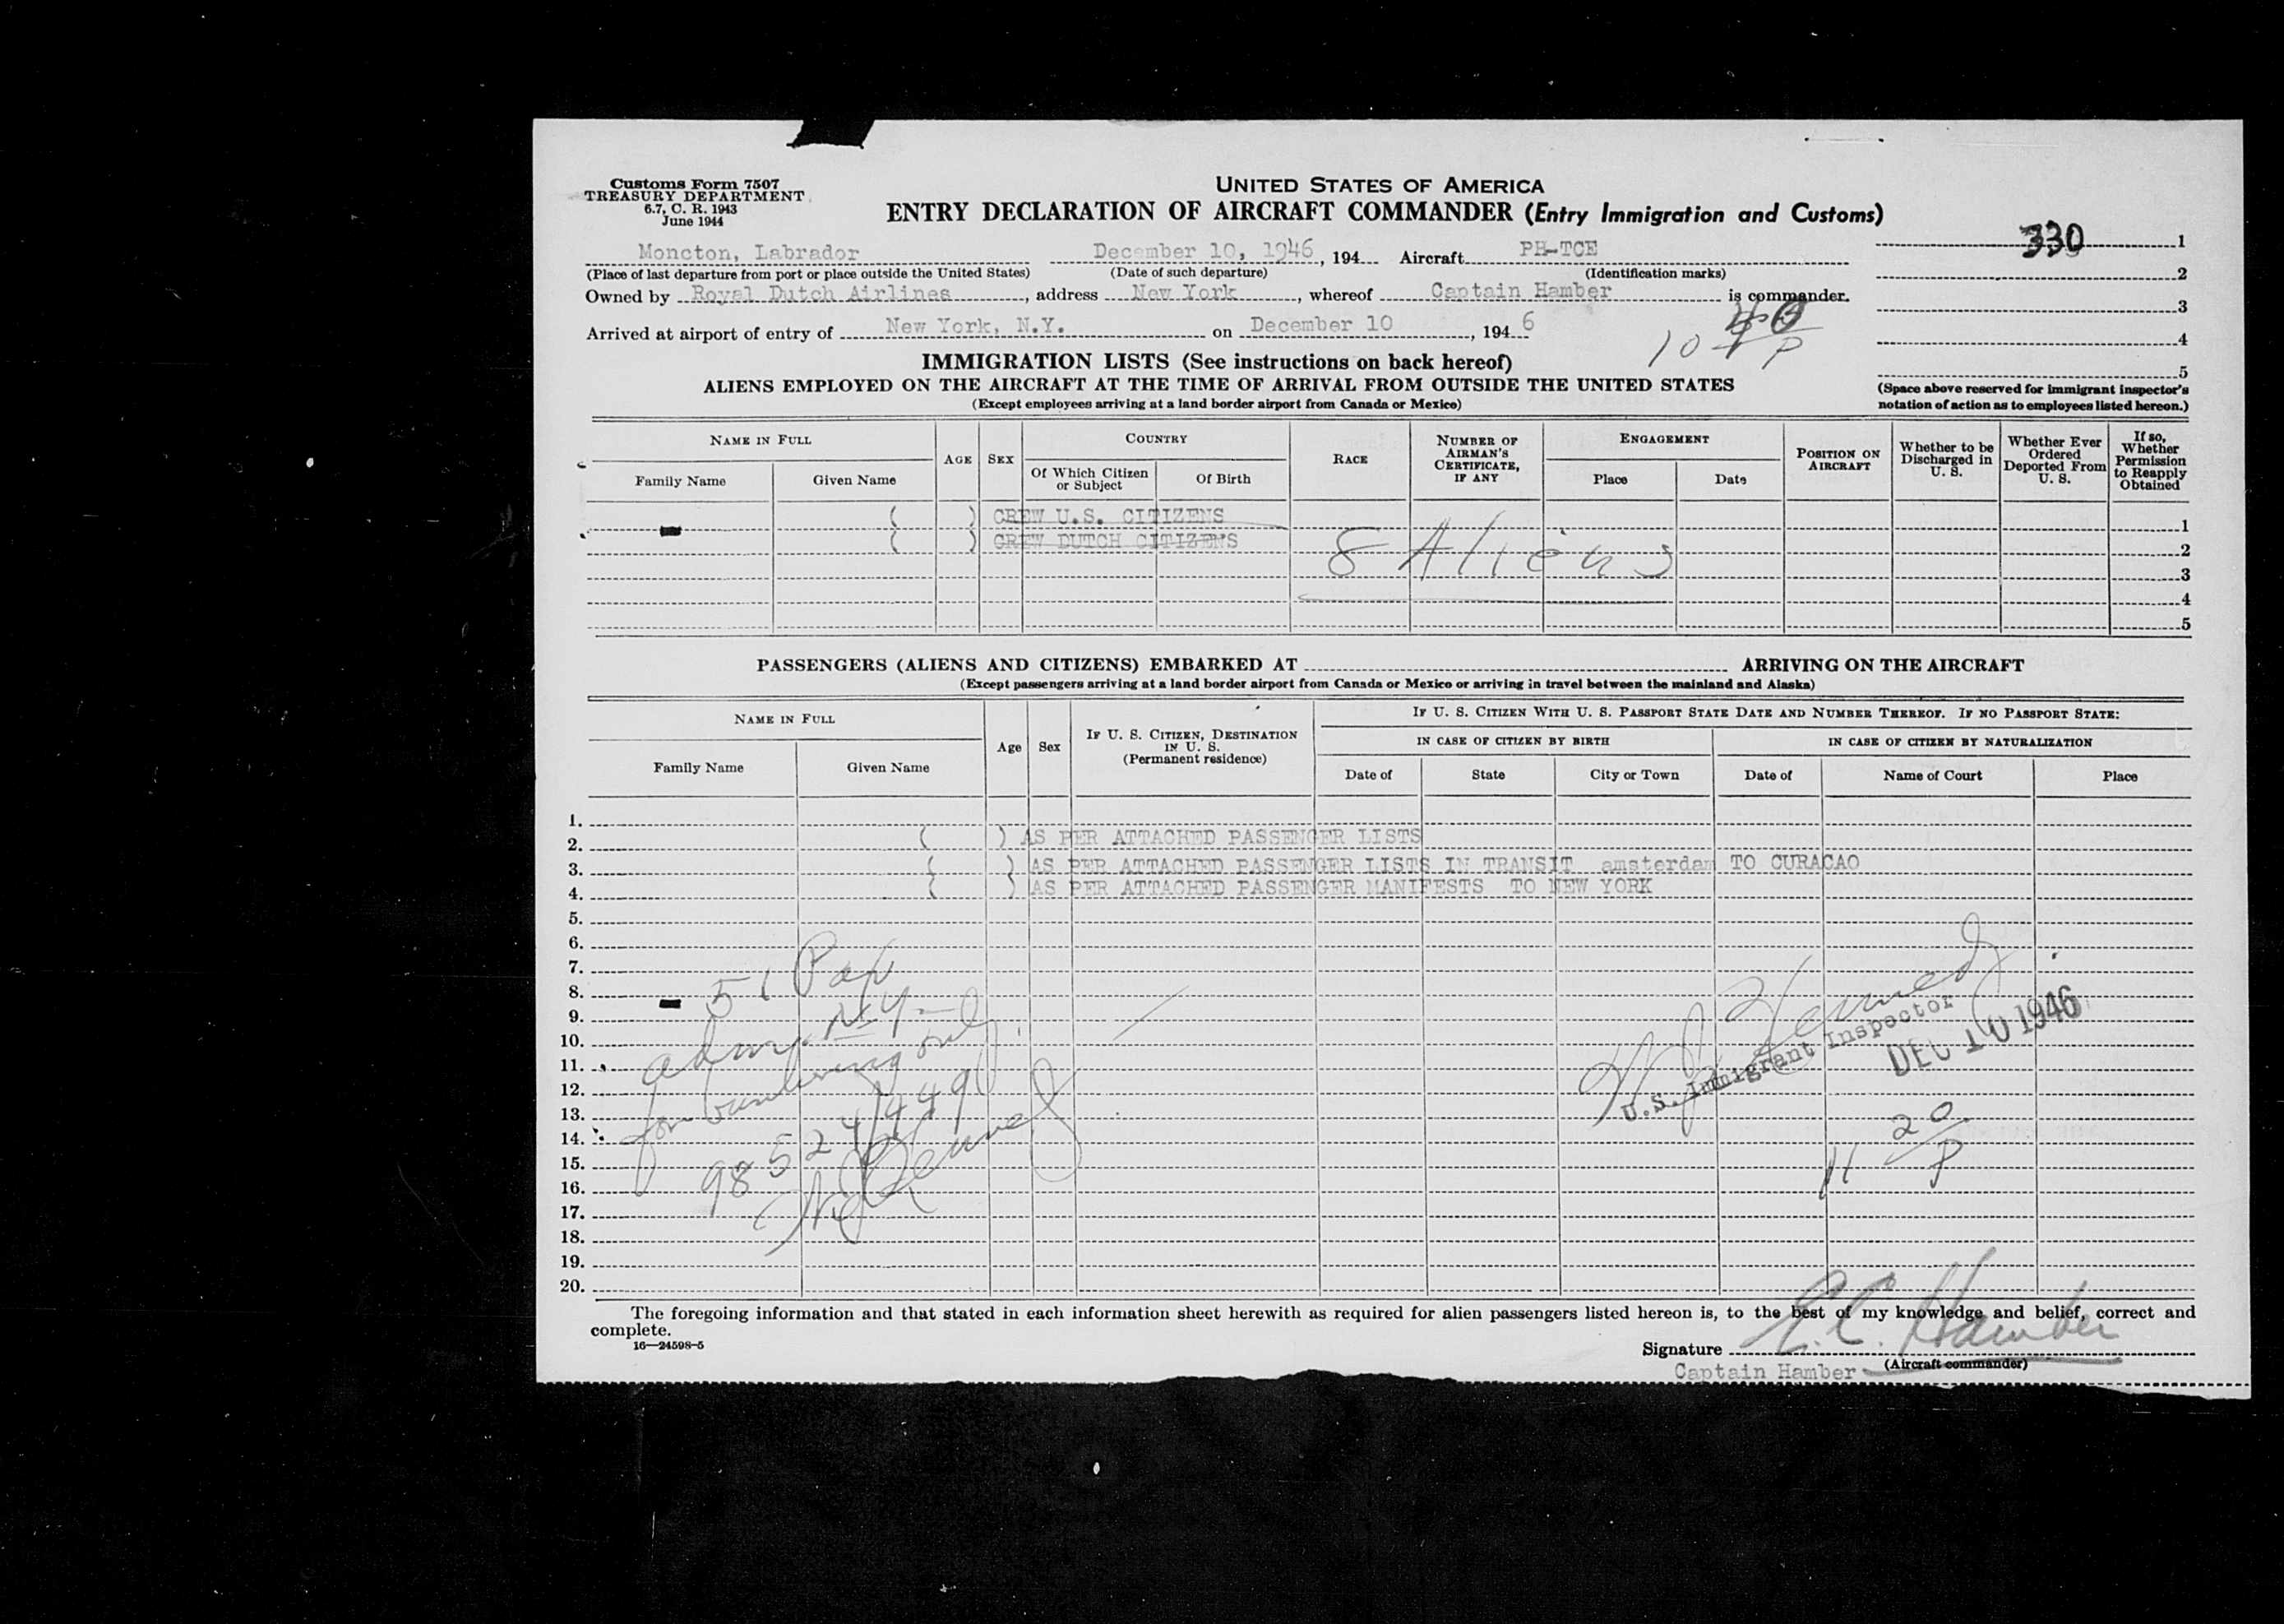 Customs Form 7507
TREASURY DEPARTMENT
6.7, C. R. 1943
June 1944
UNITED STATES OF AMERICA
ENTRY DECLARATION OF AIRCRAFT COMMANDER (Entry Immigration and Customs)
330 1
2
3
4
5
Moncton, Labrador December 10, 1946, 194 Aircraft PH-TCE
(Place of last departure from port or place outside the United States) (Date of such departure) (Identification marks)
Owned by Royal Dutch Airlines, address New York, whereof Captain Hamber is commander.
Arrived at airport of entry of New York, N.Y. on December 10, 1946
10 40 P
IMMIGRATION LISTS (See instructions on back hereof)
ALIENS EMPLOYED ON THE AIRCRAFT AT THE TIME OF ARRIVAL FROM OUTSIDE THE UNITED STATES
(Except employees arriving at a land border airport from Canada or Mexico)
(Space above reserved for immigrant inspector's
notation of action as to employees listed hereon.)
NAME IN FULL
Family Name Given Name
AGE SEX
COUNTRY
Of Which Citizen or Subject Of Birth
RACE
NUMBER OF AIRMAN'S CERTIFICATE, IF ANY
ENGAGEMENT
Place Date
POSITION ON AIRCRAFT
Whether to be Discharged in U. S.
Whether Ever Ordered Deported From U. S.
If so, Whether Permission to Reapply Obtained
( ) CREW U.S. CITIZENS 1
( ) CREW DUTCH CITIZENS 2
8 Aliens
3
4
5
PASSENGERS (ALIENS AND CITIZENS) EMBARKED AT ARRIVING ON THE AIRCRAFT
(Except passengers arriving at a land border airport from Canada or Mexico or arriving in travel between the mainland and Alaska)
NAME IN FULL
Family Name Given Name
Age Sex
IF U. S. CITIZEN, DESTINATION IN U. S.
(Permanent residence)
IF U. S. CITIZEN WITH U. S. PASSPORT STATE DATE AND NUMBER THEREOF. IF NO PASSPORT STATE:
IN CASE OF CITIZEN BY BIRTH IN CASE OF CITIZEN BY NATURALIZATION
Date of State City or Town Date of Name of Court Place
1.
2. ( ) AS PER ATTACHED PASSENGER LISTS
3. ( ) AS PER ATTACHED PASSENGER LISTS IN TRANSIT amsterdam TO CURACAO
4. ( ) AS PER ATTACHED PASSENGER MANIFESTS TO NEW YORK
5.
6.
7.
8.
9.
10.
11.
12.
13.
14.
15.
16.
17.
18.
19.
20.
51
N.Y.
for only
U.S. Immigrant Inspector
DEC 10 1946
11 20 P
The foregoing information and that stated in each information sheet herewith as required for alien passengers listed hereon is, to the best of my knowledge and belief, correct and
complete.
16—24598-5
Signature E.C. Hamber
(Aircraft commander)
Captain Hamber